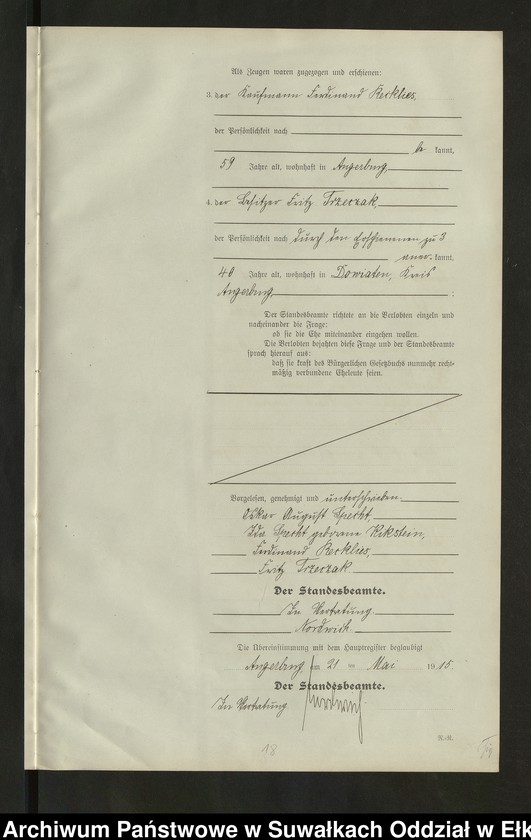 Als Zeugen waren zugezogen und erschienen:
3. der Kaufmann Ferdinand Recklies,
der Persönlichkeit nach
be kannt,
59 Jahre alt, wohnhaft in Angerburg,
4. der Besitzer Fritz Trzeczak,
der Persönlichkeit nach durch den Erschienenen zu 3
aner- kannt,
46 Jahre alt, wohnhaft in Dowiaten, Kreis
Angerburg, ;
Der Standesbeamte richtete an die Verlobten einzeln und
nacheinander die Frage:
ob sie die Ehe miteinander eingehen wollen.
Die Verlobten bejahten diese Frage und der Standesbeamte
sprach hierauf aus:
daß sie kraft des Bürgerlichen Gesetzbuchs nunmehr recht-
mäßig verbundene Eheleute seien.
Vorgelesen, genehmigt und unterschrieben.
Oskar August Specht,
Ida Specht geborene Rikstein,
Ferdinand Recklies,
Fritz Trzeczak
Der Standesbeamte.
In Vertretung
Nordwich
Die Übereinstimmung mit dem Hauptregister beglaubigt
Angerburg, = 21 = Mai 1915.
Der Standesbeamte.
In Vertretung
R.-R.
18
Archiwum Państwowe w Suwałkach Oddział w Ełk